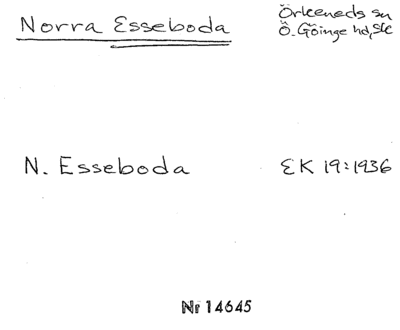 Norra Esseboda
Örkeneds sn
Ö. Göinge hd, Sk
N. Esseboda
EK 19:1936
Nr 14645